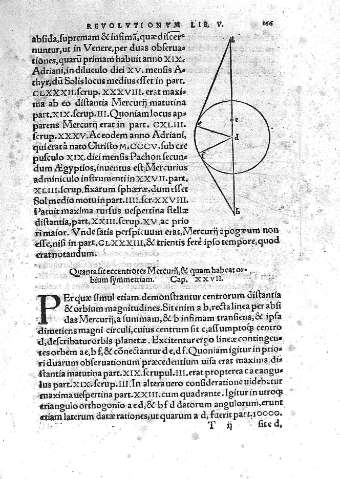 REVOLVTIONVM LIB. V. 166
absida, supremam & infimã, quæ discer
nuntur, ut in Venere, per duas obserua-
tiones, quarũ primam habuit anno XIX.
Adriani, in diluculo diei XV. mensis A-
thyr, dũ Solis locus medius esset in part.
CLXXXII. scrup. XXXVIII. erat maxi
ma ab eo distantia Mercurij matutina
part. XIX. scrup. III. Quoniam locus ap-
parens Mercurij erat in part. CXLIII.
scrup. XXXV. Ac eodem anno Adriani,
qui erat à nato Christo M. CCCV. sub cre
pusculo XIX. diei mensis Pachon secun-
dum Ægyptios, inuentus est Mercurius
adminiculo instrumenti in XXVII. part.
XLIII. scrup. fixarum sphæræ, dum esset
Sol medio motu in part. IIII. scr. XXVIII.
Patuit maxima rursus uespertina stellæ
distantia, part. XXIII. scrup. XV. ac prio
ri maior. Vnde satis perspicuum erat, Mercurij apogæum non
esse, nisi in part. CLXXXIII, & trientis ferè ipso tempore, quod
erat notandum.
Quanta sit eccentrotes Mercurij, & quam habeat or-
bium symmetriam. Cap. XXVII.
PEr quæ simul etiam demonstrantur centrorum distantia
& orbium magnitudines. Sit enim a b, recta linea per absi
das Mercurij, a summam, & b infimam transiens, & ipsa
dimetiens magni circuli, cuius centrum sit c, assumptoq́; centro
d, describatur orbis planetæ. Excitentur ergo lineæ contingen-
tes orbem a e, b f, & cõnectantur d e, d f. Quoniam igitur in prio
ri duarum obseruationum præcedentium uisa erat maxima di-
stantia matutina part. XIX. scrupul. III. erat propterea c a e angu-
lus part. XIX. scrup. III. In altera uero consideratione uidebatur
maxima uespertina part. XXIII. cum quadrante. Igitur in utroq́;
triangulo orthogonio a e d, & b f d datorum angulorum, erunt
etiam laterum datæ rationes, ut quarum a d, fuerit part. 10000.
T ij sit e d,
a
c
e
d
f
b